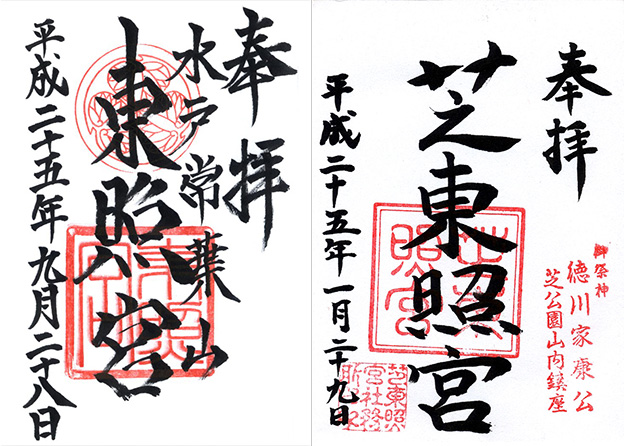 奉拝
水戸常葉山
東照宮
平成二十五年九月二十八日
奉拝
御祭神
徳川家康公
芝公園山内鎮座
芝東照宮
平成二十五年一月二十九日
芝東照
宮社務